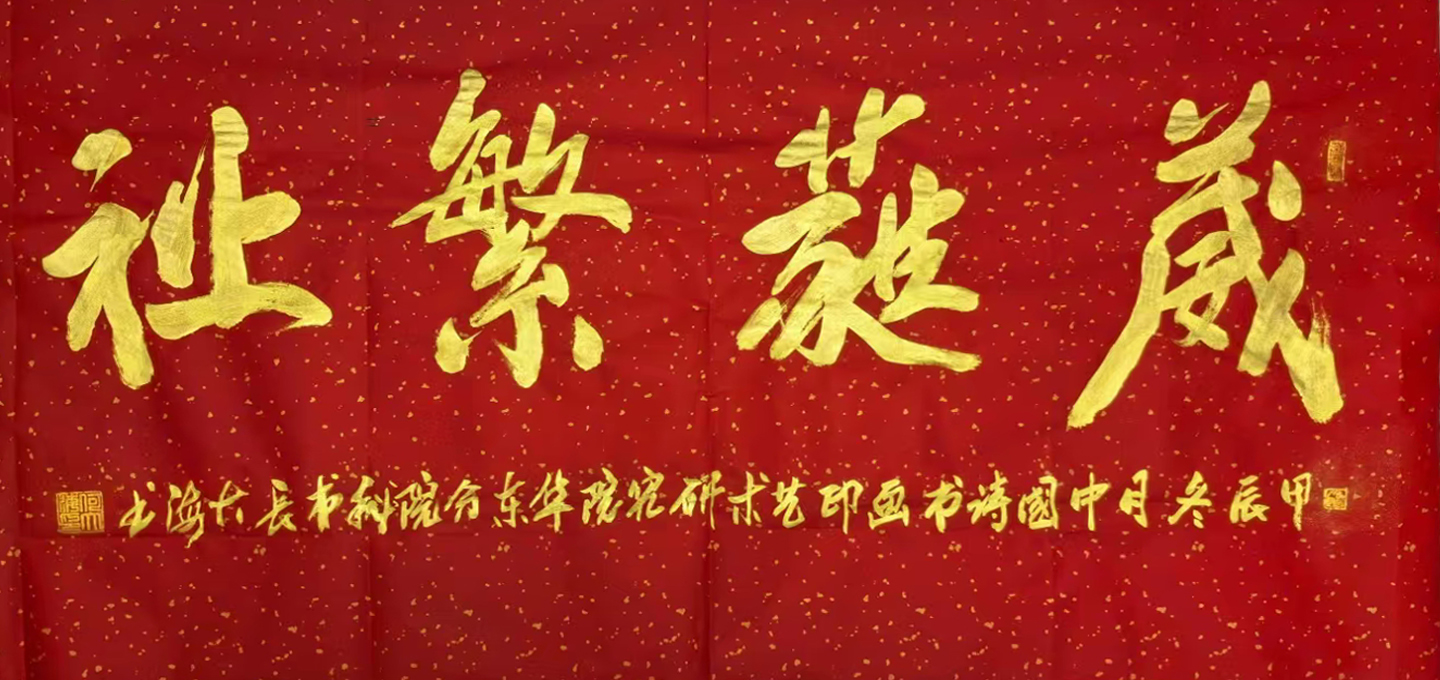 葳蕤繁祉
甲辰冬月中國诗书画印艺术研究院华东分院秘书长大海书